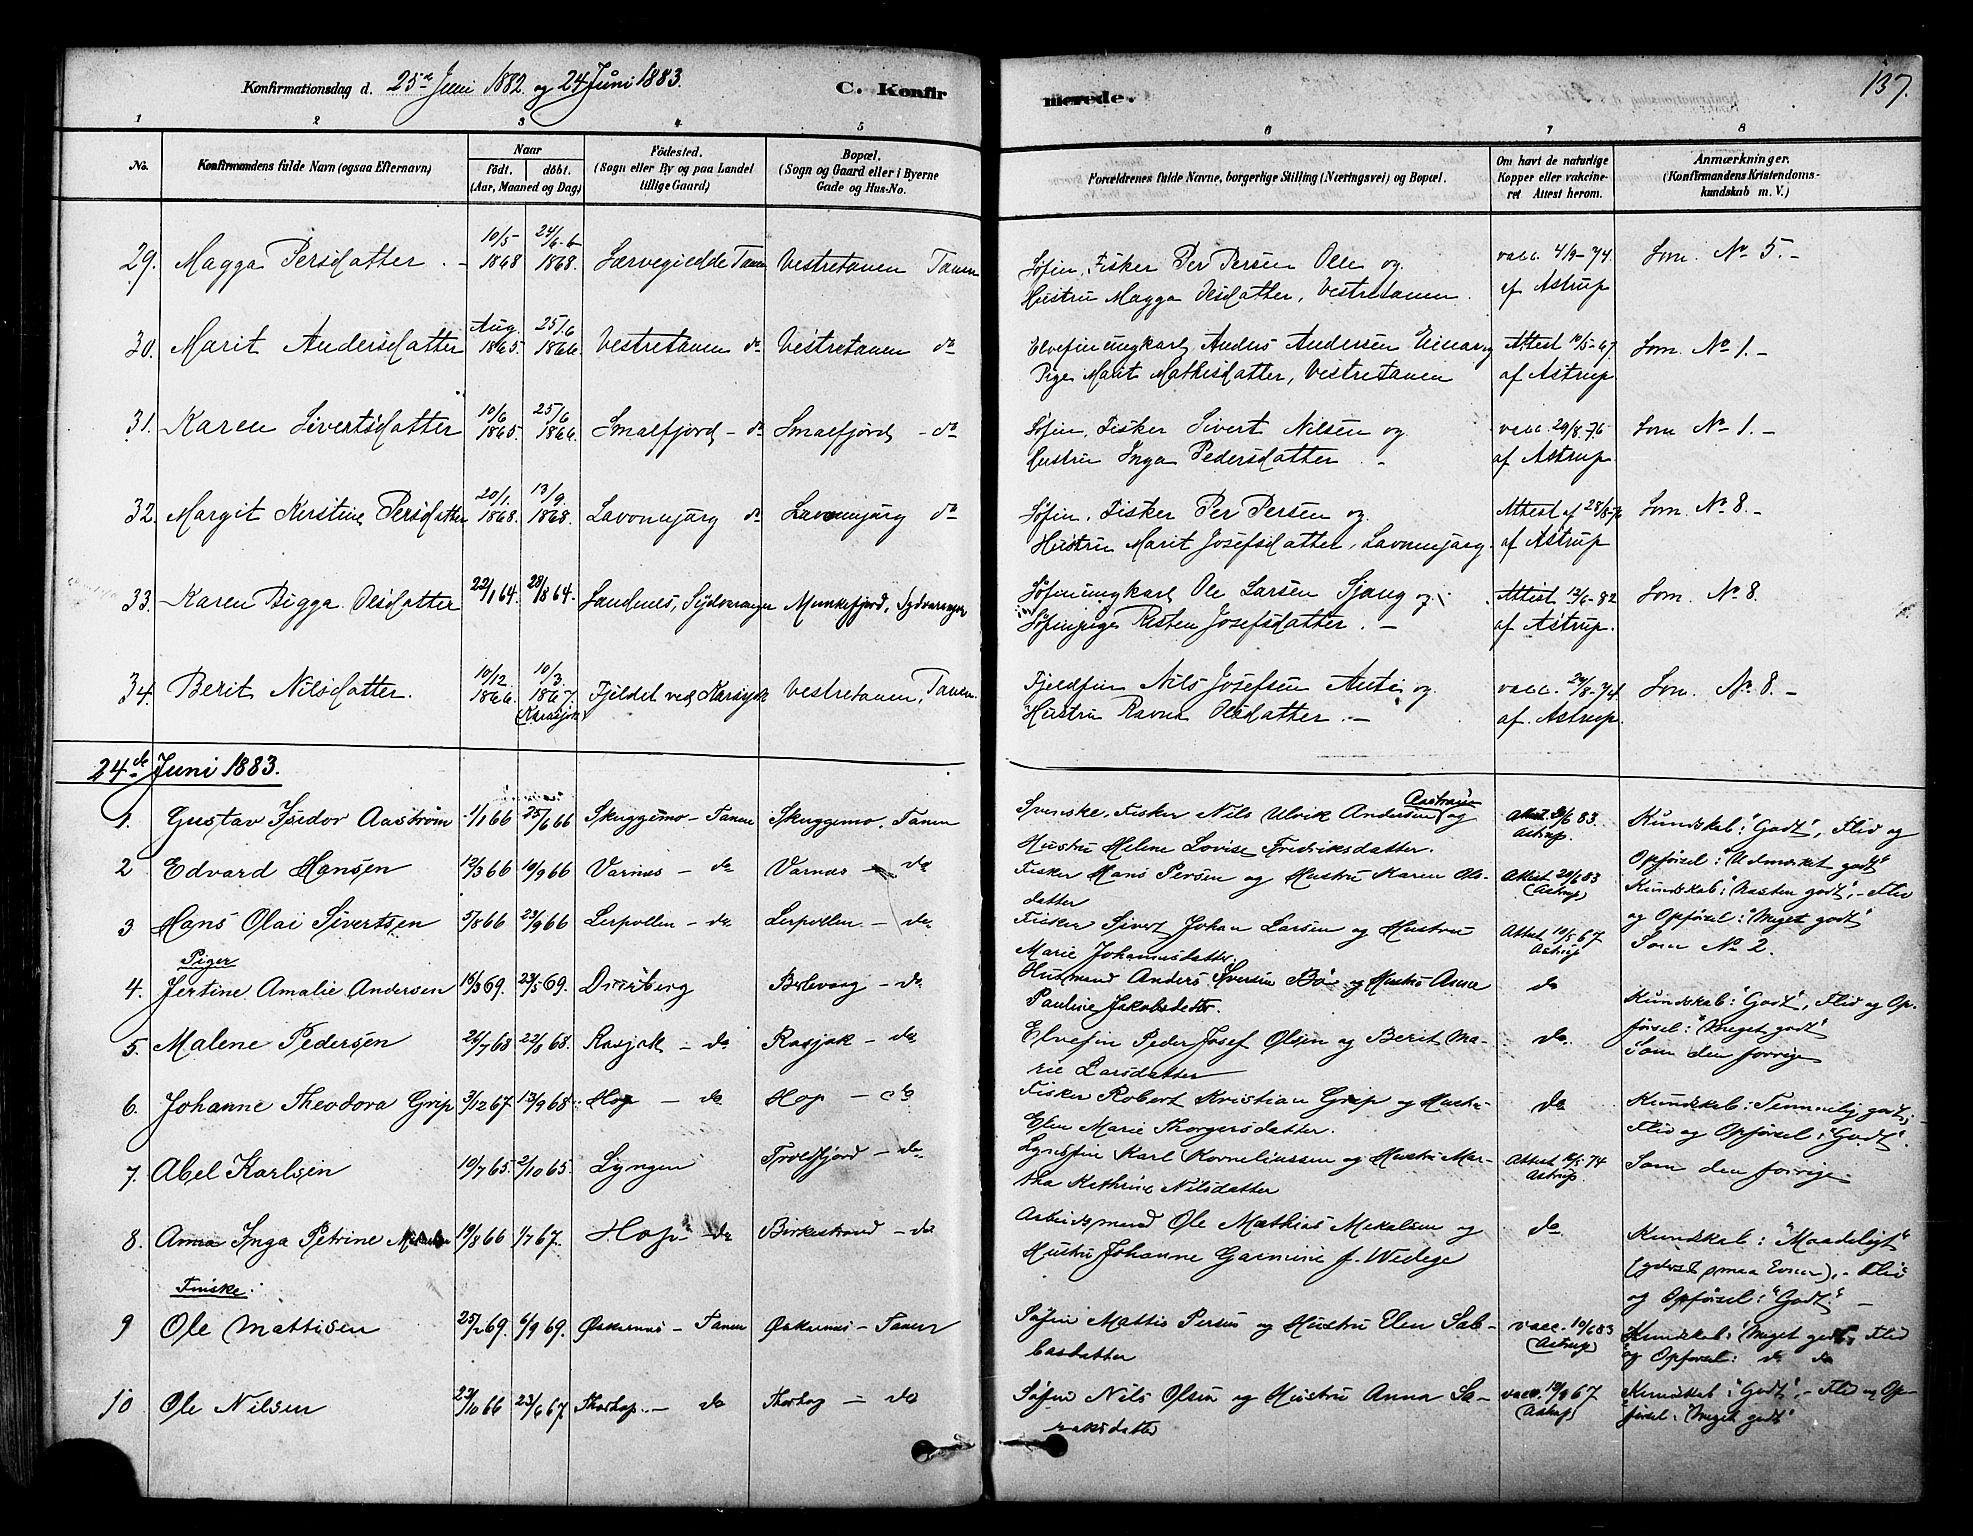 Konfirmationsdag d. 25de Juni 1882 og 24 Juni 1883.
C. Konfirmerede.
137.
1 2 3 4 5 6 7 8
No.
Konfirmandens fulde Navn (ogsaa Efternavn)
Naar
födt. döbt.
(Aar, Maaned og Dag)
Födested.
(Sogn eller By og paa Landet
tillige Gaard)
Bopæl.
(Sogn og Gaard eller i Byerne
Gade og Hus-No.
Forældrenes fulde Navne, borgerlige Stilling (Næringsvei) og Bopæl.
Om havt de naturlige
Kopper eller vakcine-
ret Attest herom.
Anmærkninger.
(Konfirmandens Kristendoms-
kundskab m. V.)
29. Magga Persdatter. 10/5 1868 24/6 1868. Lærvegiedde Tanen Vestretanen Tanen Søfin, Fisker Per Persen Ole og vacc. 4/9-74. Som No 5.-
Hustru Magga Olsdatter, Vestretanen. af Astrup
30. Marit Andersdatter Aug. 1865 25/6 1866. Vestretanen do Vestretanen do Elvefin ungkarl Anders Andersen og Attest 10/5-67. Som No 1.-
Pige Marit Mathisdatter, Vestretanen af Astrup.
31. Karen Sivertsdatter 10/6 1865 25/6 1866. Smalfjord - do Smalfjord - do Søfin, Fisker Sivert Nilsen og vacc. 29/8-76 Som No 1.-
Hustru Inga Pedersdatter. - af Astrup.
32. Margit Kirstine Persdatter 20/1 1868. 13/9 1868. Lavonnjarg do Lavonnjarg do Søfin, Fisker Per Persen og Attest af 28/8-76 Som No 8.-
Hustru Marit Josefsdatter, Lavonnjarg. af Astrup
33. Karen Bigga Olsdatter 22/1 64. 28/8 64. Sandnes, Sydvaranger Munkefjord, Sydvaranger Søfinungkarl Ole Larsen Sjang og Attest 13/6-82 Som No 8.
Søfinpige Risten Josefsdatter. - af Astrup.
34. Berit Nilsdatter. 10/12 1866. 10/3. 1867 (Karasjok) Fjeldet ved Karasjok Vestretanen, Tanen. Fjeldfin Nils Josefsen Anti og vacc. 29/8-74. Som No 8.-
Hustru Ravna Olsdatter. - af Astrup.
24de Juni 1883.
1. Gustav Isidor Aastrøm 1/1 66 25/6 66 Skuggemo - Tanen Skuggemo, Tanen Svenske, Fisker Nils Ulrik Andersen Aastrøm og Attest 9/6 83. Kundskab: "Godt", Flid og
Hustru Helene Lovise Fredriksdatter. Astrup. Opførsel: "Udmærket godt"
2 Edvard Hansen 12/3 66 10/9 66 Varnæs - do Varnæs - do Fisker Hans Persen og Hustru Karen Ols- Attest 20/6 83 Kundskab: "Næsten godt", - Flid
datter (Astrup) og Opførsel: "Meget godt"
3 Hans Olai Sivertsen 5/8 66 23/9 66 Lerpollen - do Lerpollen - do Fisker Sivert Johan Larsen og Hustru Attest 10/5 67 Som No 2.
Marie Johannesdatter. Astrup
Piger
4. Jertine Amalie Andersen 16/3 69. 24/5 69. Berlevaag - do Husmand Anders Iversen Bø og Hustru Anna do Kundskab: "Godt", Flid og Op-
Pauline Jakobsdatter. førsel: "Meget godt"
5. Malene Pedersen 26/7 68 22/8 68. Rasjok - do Rasjok - do Elvefin Peder Josef Olsen og Berit Ma- do. Som den forrige
rie Larsdatter
6. Johanne Theodora Grip 3/12 67 13/9 68. Hop - do Hop - do Fisker Robert Kristian Grip og Hustru do Kundskab: Temmelig godt;
Elen Marie Thorgersdatter. Flid og Opførsel: "Godt".
7. Abel Karlsen 10/7 65 2/10 65 Lyngen Troldfjord - do Lynsfin Karl Korneliussen og Hustru Mar- Attest 12/5 74 Som den forrige
tha Kathrine Nilsdatter Astrup.
8. Anna Inga Petrine 19/8 66 1/7 67. Hop - do Birkestrand - do Arbeidsmand Ole Mathias Mekalsen og do Kundskab: "Maadeligt"
Hustru Johanne f. Wedege (yderst smaa Evner), - Flid
og Opførsel: "Godt" -
Finske:
9 Ole Mattisen 25/2 69. 6/9 69. Øskarnæs - Tanen Øskarnæs - Tanen Søfin Mattis Persen og Hustru Elen Sab- vacc. 10/6 83 Kundskab: "Meget godt", Flid
basdatter (Astrup) og Opførsel: do do
10 Ole Nilsen 23/10 66 23/6 67. Thorhop. - do Thorhop - do Søfin Nils Olsen og Hustru Anna Sa- vacc. 19/9 67 Kundskab: "Godt", - Flid og Op-
raksdatter (Astrup) førsel: "Meget godt"